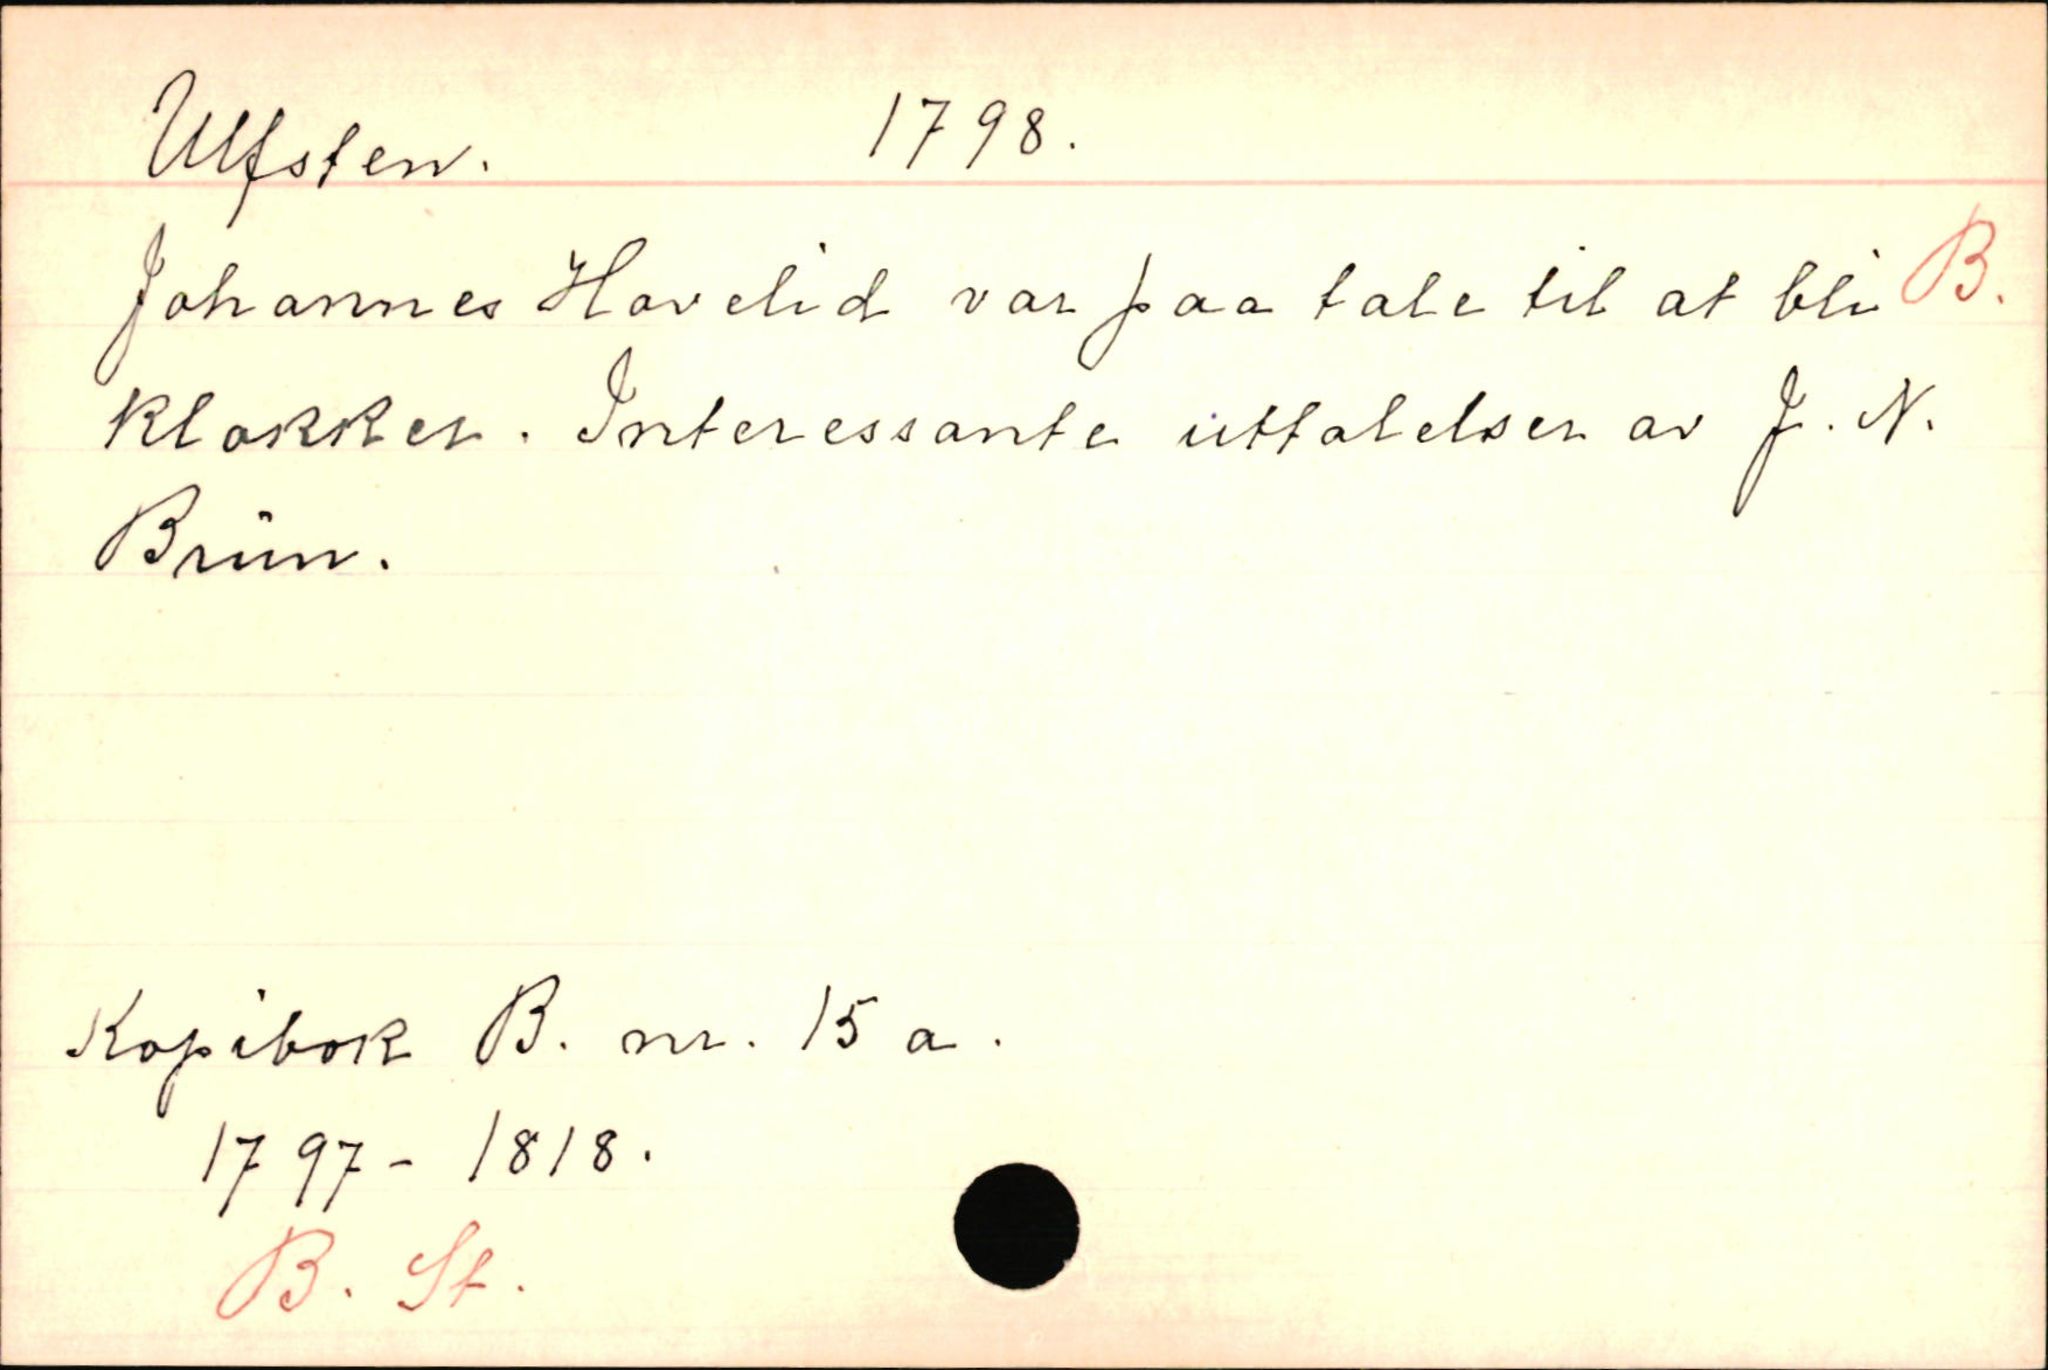 Ulfsten. 1798.
Johannes Havelid var paa tale til at bli B.
klokker. Interessante uttalelser av J. N.
Brun.
Kopibok B. nr. 15 a.
1797 - 1818.
B. St.